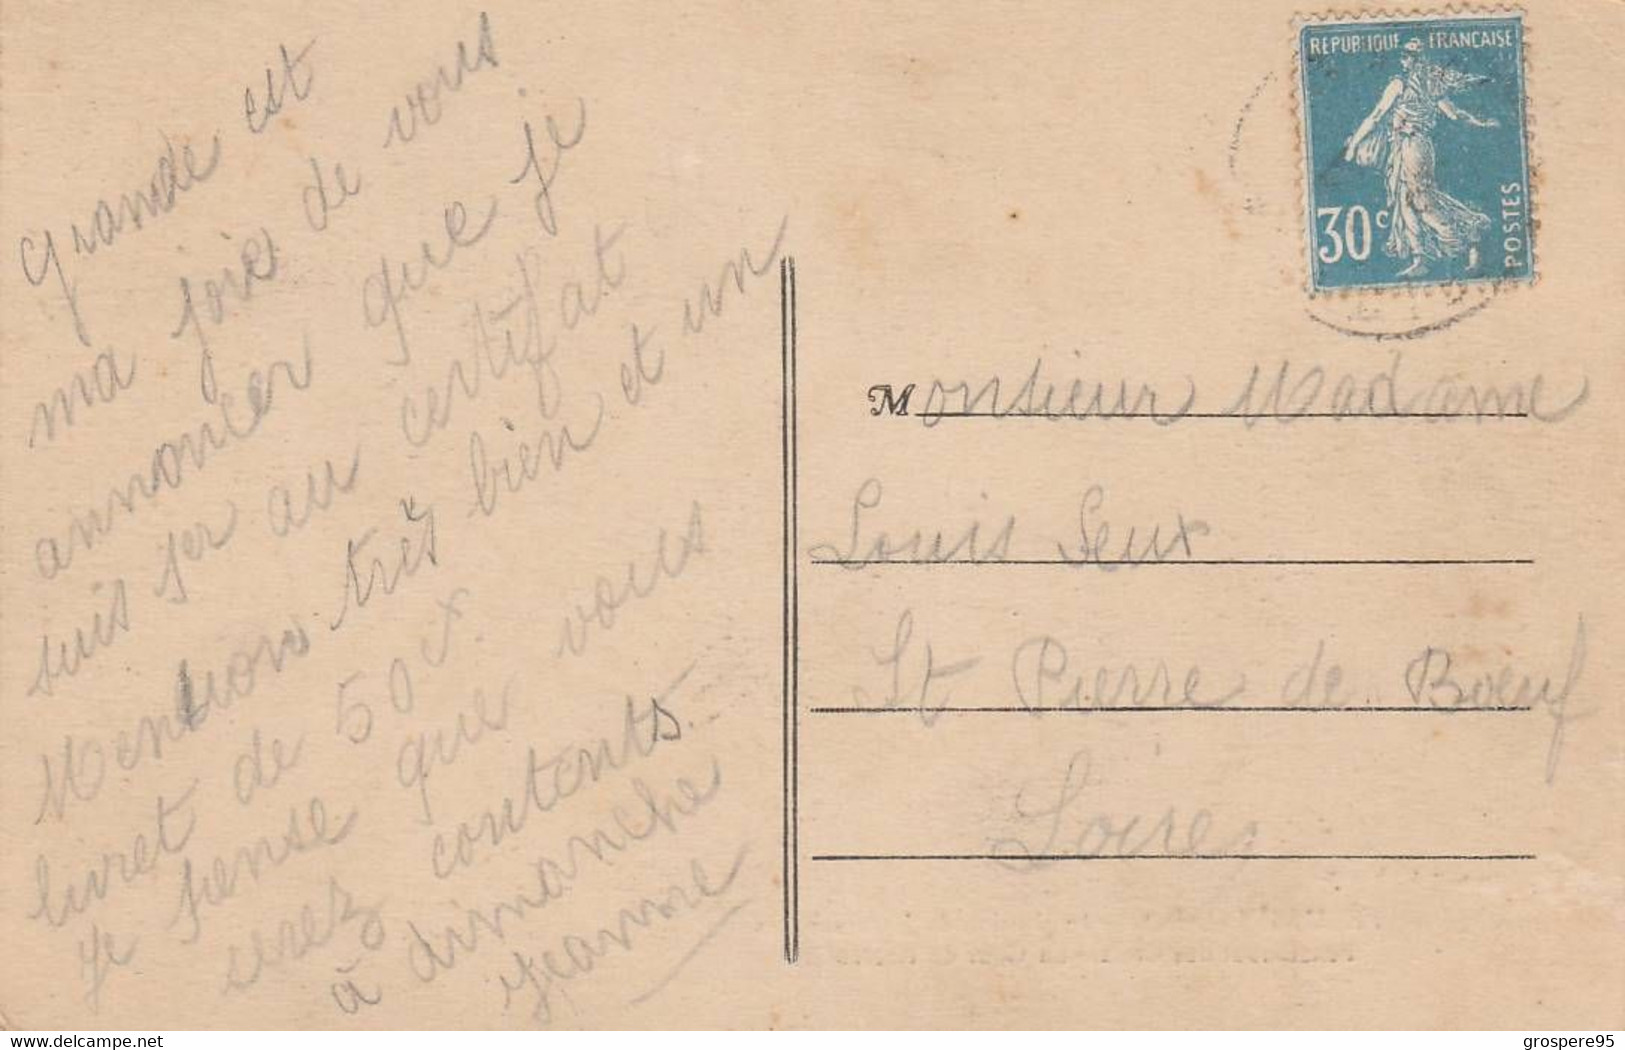 Grande est
ma joie de vous
annoncer que je
suis 1er au certifat
Mention très bien et un
livret de 50 x.
Je pense que vous
serez contents.
à dimanche
Jeanne
REPUBLIQUE FRANCAISE
30c
POSTES
Monsieur Madame
Louis Seux
St Pierre de Boeuf
Loire
www.delcampe.net
grospere95